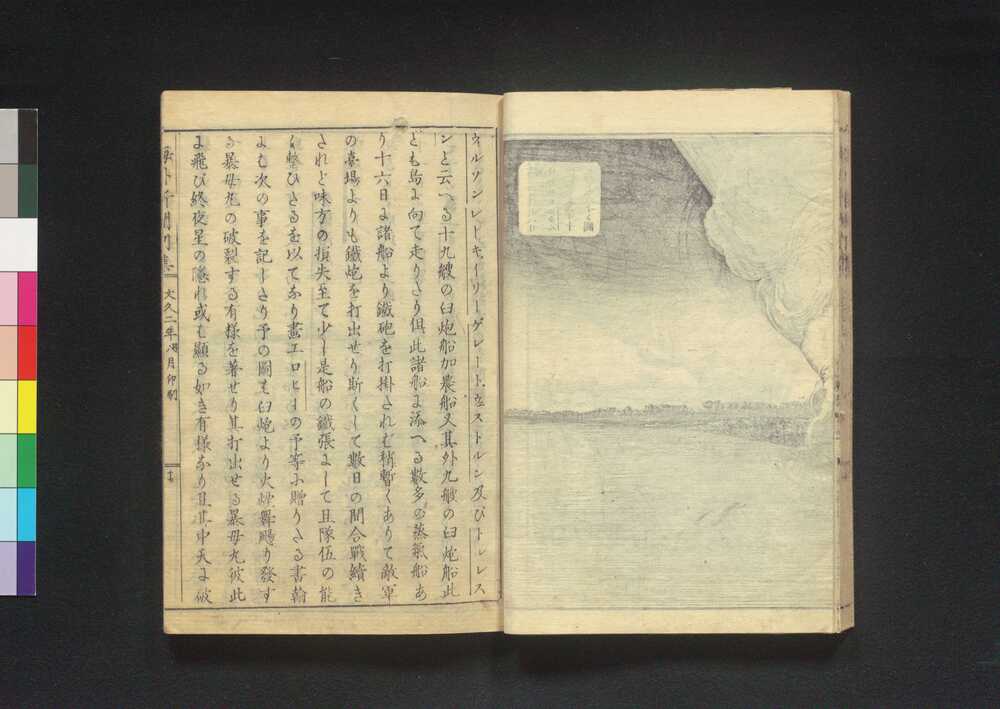 ウィルソンレーキィーリーゲレートウェストルン及びトレレス
ンと云へる十九艘の臼炮船加農船又其外九艘の臼炮船此
ども島に向て走りさり倶此諸船に添へる數多の蒸氣船あ
り十六日に諸船より鐵砲を打掛されど稍暫くありて敵軍
の臺場よりも鐵炮を打出せり斯くして數日の間合戰續き
されど味方の損失至て少し是船の鐵張にして且隊伍の能
く整ひさるを以てなり畫工ロヒーの予等に贈りさる書翰
よも次の事を記しさり予の圖も臼炮より火煙舞颺り發す
る暴母丸の破裂する有樣を著せり其打出せる暴母丸彼此
に飛び終夜星の隱れ或も顯る如き有樣なり且其中天に破
文久二年 月印刷